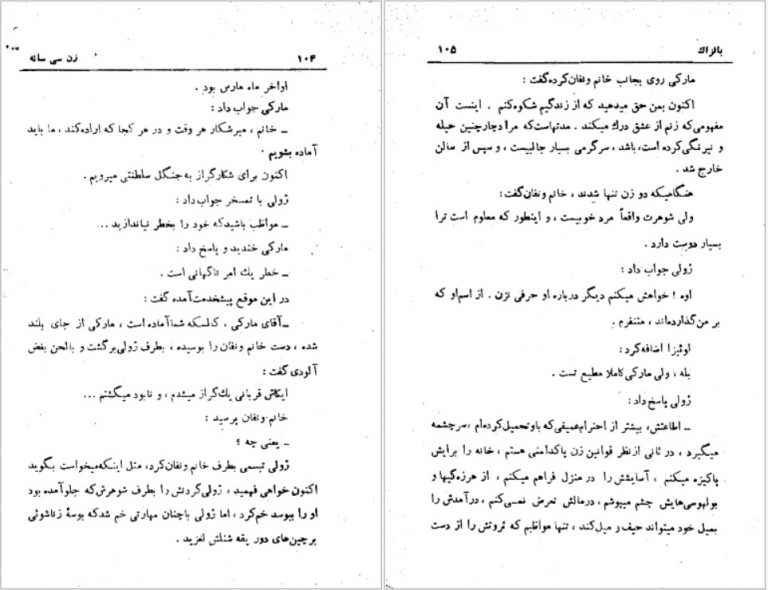 ۱۰۴ زن سی ساله
اواخر ماه مارس بود .
مارکی جواب داد :
ــ خانم ، میرشکار هر وقت و در هر کجا که اراده کند ، ما باید
آماده بشویم .
اکنون برای شکارگراز به جنگل سلطنتی میرویم .
ژولی با تمسخر جواب داد :
ــ مواظب باشیدکه خود را بخطر نیاندازید ...
مارکی خندید و پاسخ داد :
ــ خطر یك امر ناگهانی است .
در این موقع پیشخدمت آمده گفت :
ــ آقای مارکی ، کالسکه شما آماده است ، مارکی از جای بلند
شده ، دست خانم ونفان را بوسیده ، بطرف ژولی برگشت و بالحن بغض
آلودی گفت :
ایکاش قربانی یك گراز میشدم ، و نابود میگشتم ...
خانم ونفان پرسید :
ــ یعنی چه ؟
ژولی تبسمی بطرف خانم ونفان کرد، مثل اینکه میخواست بگوید
اکنون خواهی فهمید ، ژولی گردنش را بطرف شوهرش که جلو آمده بود
او را ببوسد خم کرد ، اما ژولی باچنان مهارتی خم شدکه بوسهٔ زناشوئی
برچین‌های دور یقه شنلش لغزید .
بالزاك ۱۰۵
مارکی روی بجانب خانم ونفان کرده گفت :
اکنون بمن حق میدهید که از زندگیم شکوه کنم . اینست آن
مفهومی که زنم از عشق درك میکند . مدتهاست که مرا دچارچنین حیله
و نیرنگی کرده است، باشد ، سرگرمی بسیار جالبیست ، و سپس از سالن
خارج شد .
هنگامیکه دو زن تنها شدند ، خانم ونفان گفت:
ولی شوهرت واقعاً مرد خوبیست ، و اینطور که معلوم است ترا
بسیار دوست دارد .
ژولی جواب داد :
اوه ! خواهش میکنم دیگر درباره او حرفی نزن . از اسم او که
بر من گذارده‌اند ، متنفرم .
لوئیزا اضافه کرد :
بله ، ولی مارکی کاملا مطیع تست .
ژولی پاسخ داد :
ــ اطاعتش، بیشتر از احترام عمیقی که باو تحمیل کرده‌ام ، سرچشمه
میگیرد ، در ثانی از نظر قوانین زن پاکدامنی هستم ، خانه را برایش
پاکیزه میکنم ، آسایشش را در منزل فراهم میکنم ، از هرزه‌گیها و
بولهوسی‌هایش چشم میپوشم ، درمالش تعرض نمی‌کنم ، درآمدش را
بمیل خود میتواند حیف و میل کند ، تنها مواظبم که ثروتش را از دست